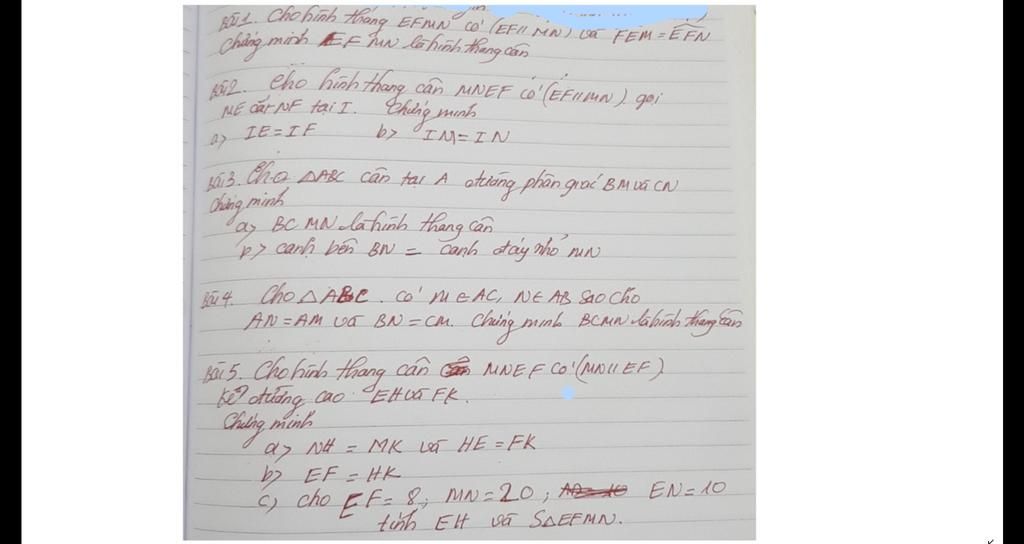 Bài 1. Cho hình thang EFMN có (EF // MN) và FEM = EFN
Chứng minh EFMN là hình thang cân
Bài 2. Cho hình thang cân MNEF có (EF // MN) gọi
ME cắt NF tại I. Chứng minh
a> IE = IF b> IM = IN
Bài 3. Cho △ABC cân tại A đường phân giác BM và CN
Chứng minh
a> BCMN là hình thang cân
b> cạnh bên BN = cạnh đáy nhỏ MN
Bài 4. Cho △ABC. có M ∈ AC, N ∈ AB sao cho
AN = AM và BN = CM. Chứng minh BCMN là hình thang cân
Bài 5. Cho hình thang cân MNEF có (MN // EF)
Kẻ đường cao EH và FK.
Chứng minh
a> NH = MK và HE = FK
b> EF = HK
c) cho EF = 8; MN = 20; EN = 10
tính EH và S△EFMN.